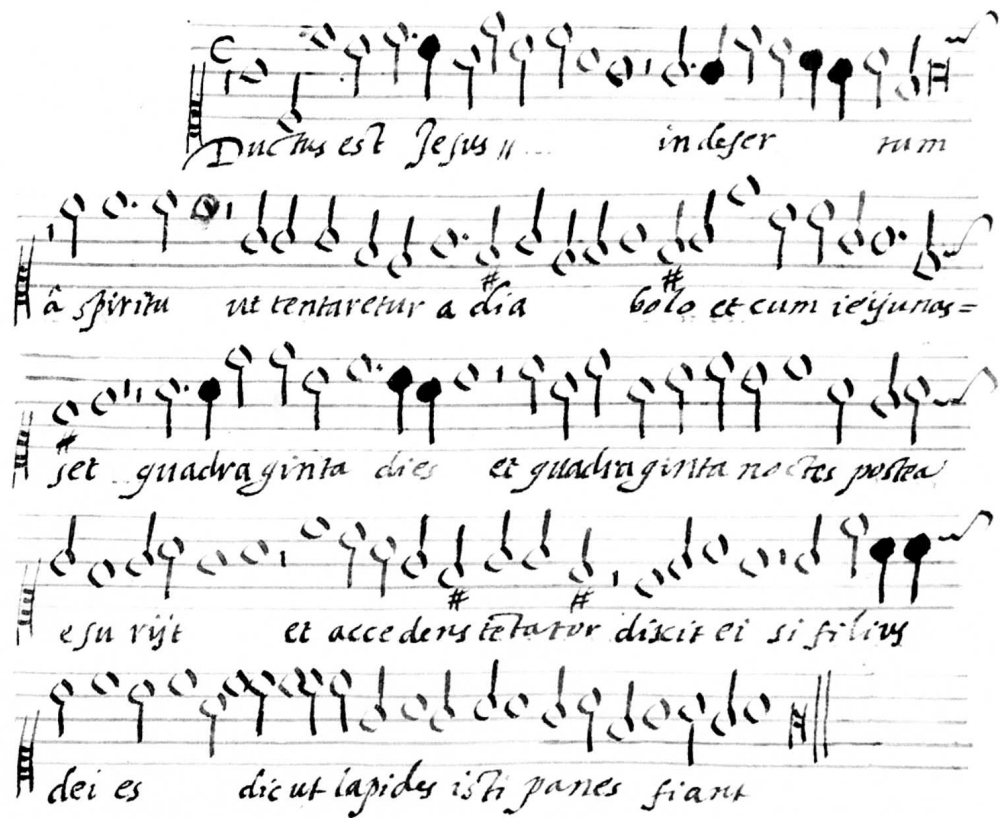 Ductus est Jesus ij in deser tum
â spiritu ut tentaretur a dia bolo et cum ieijunas=
set quadra ginta dies et quadra ginta noctes postea
e su rijt et accedens tētator dixit ei si filius
dei es dic ut lapides isti panes fiant